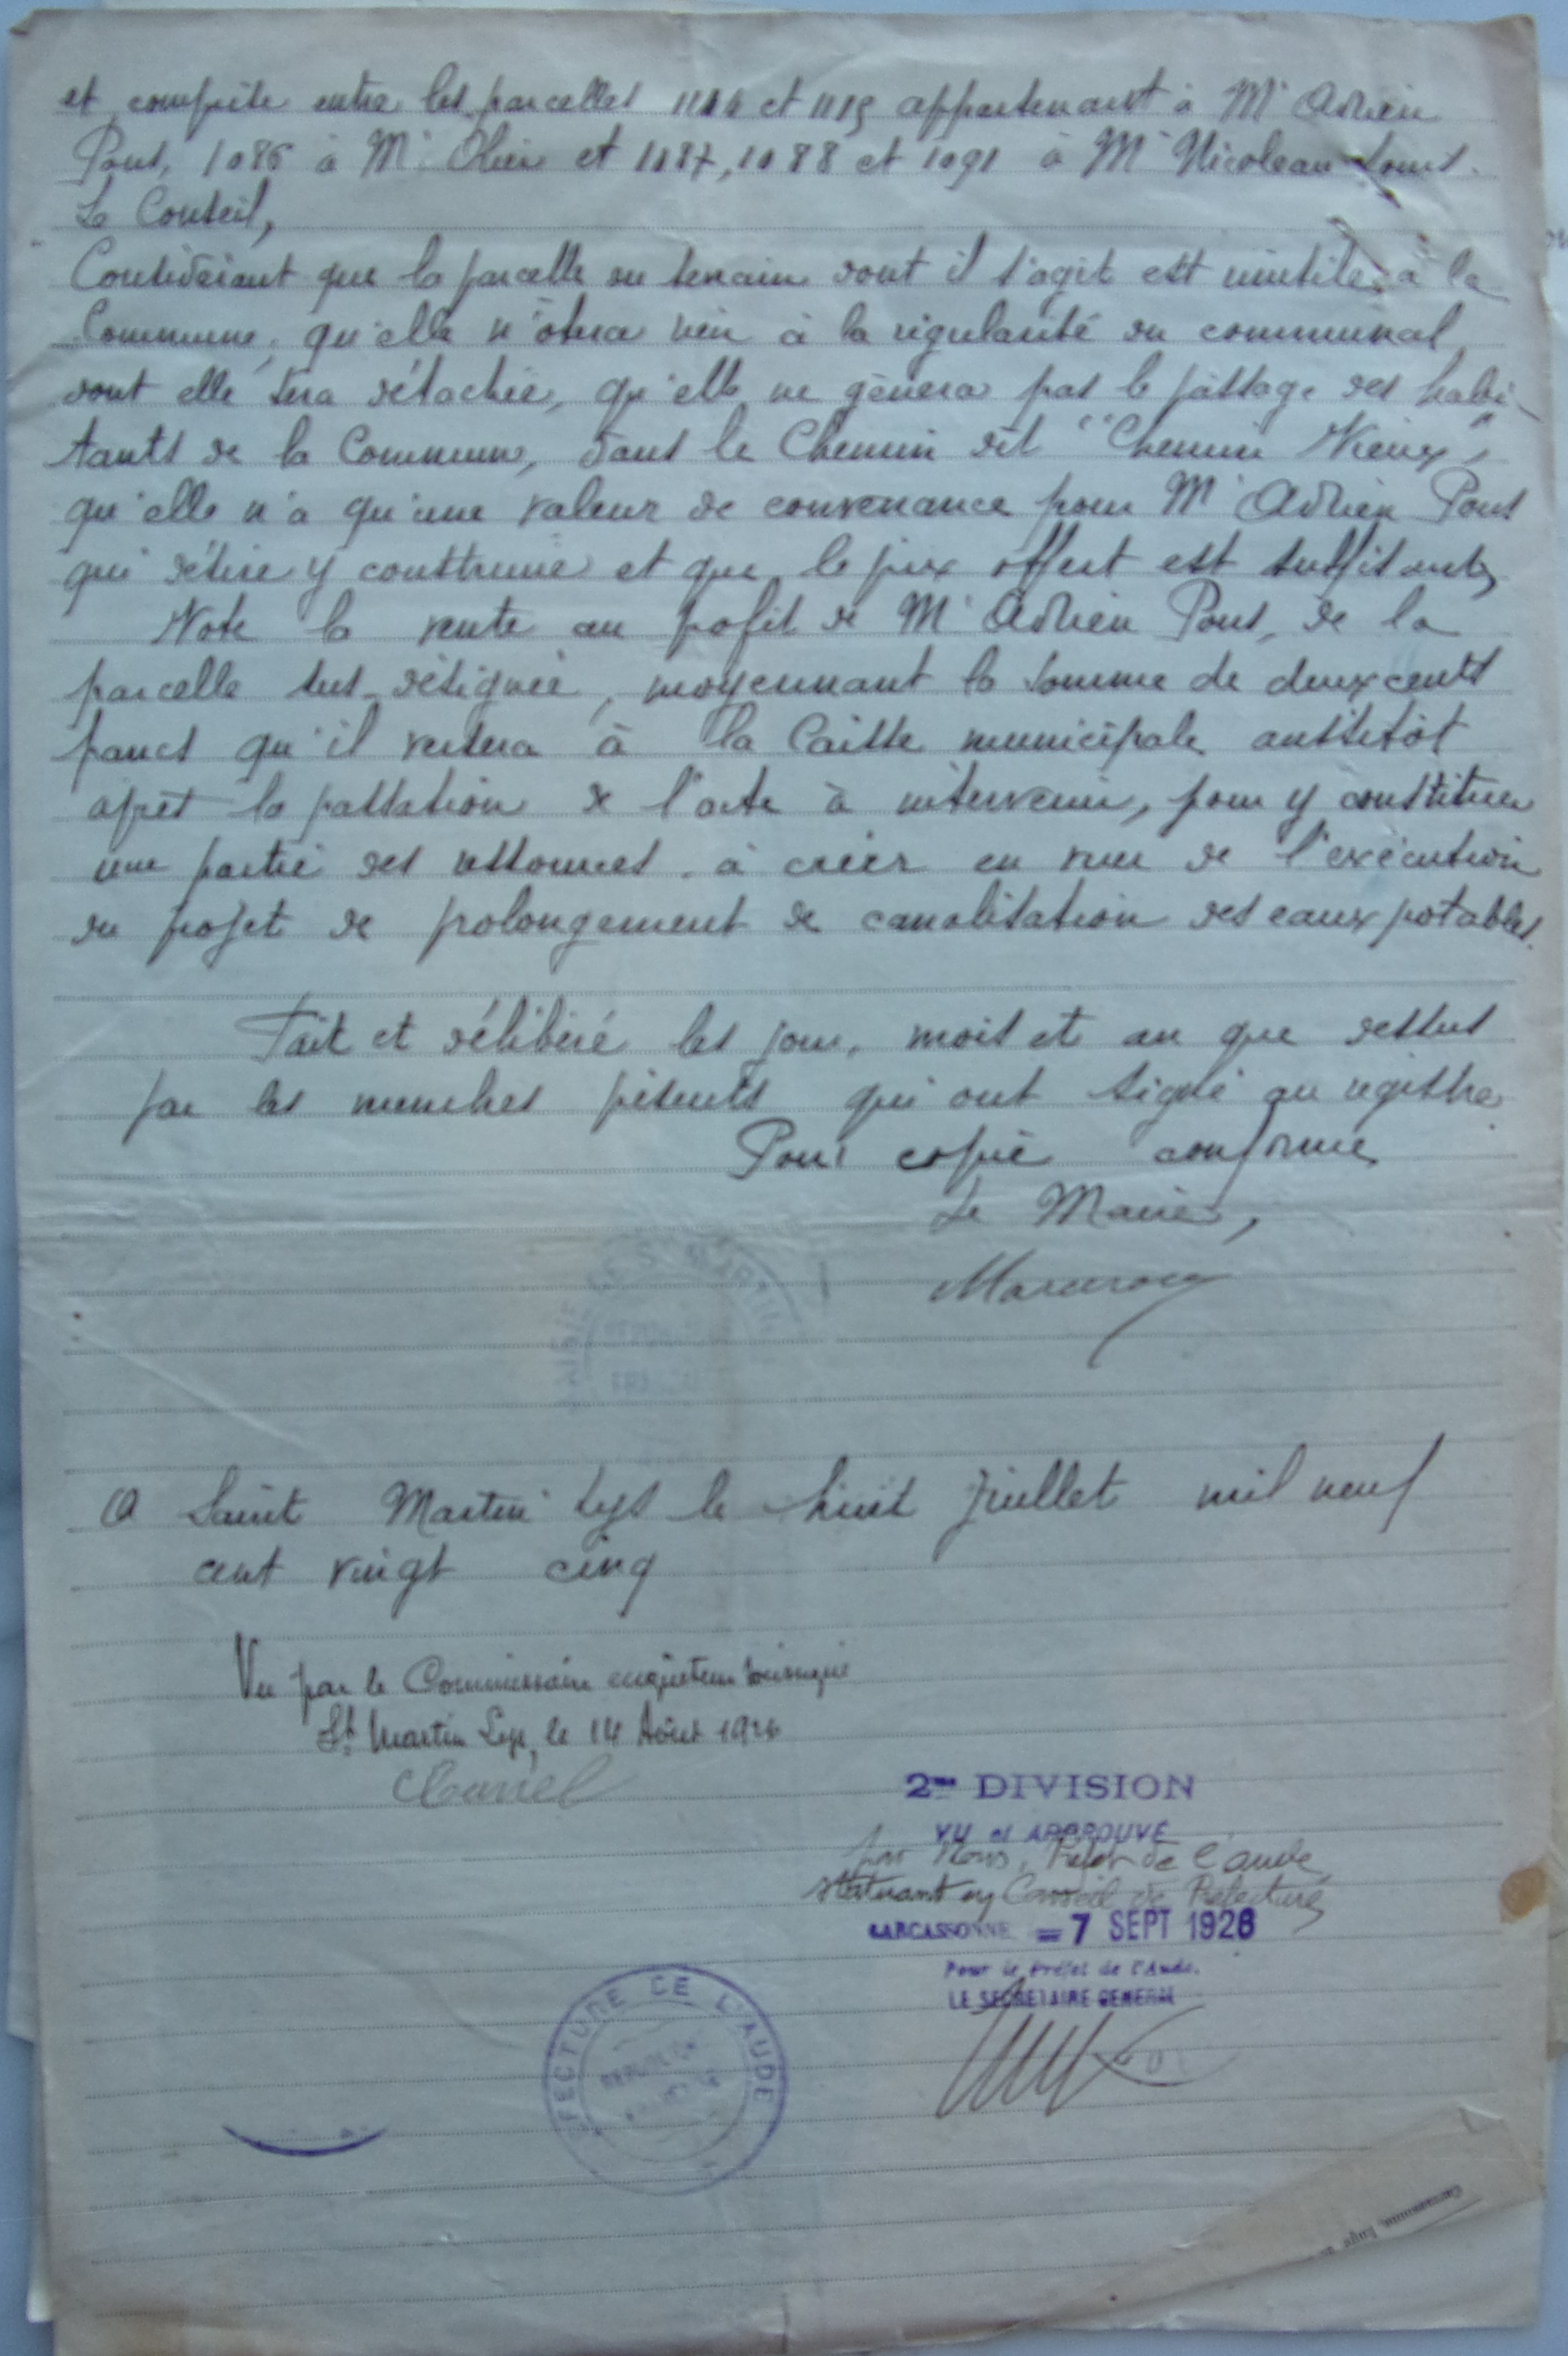 et comprise entre les parcelles 1114 et 1115 appartenant à Mr Adrien
Pons, 1086 à Mr Olier et 1087, 1088 et 1091 à Mr Nicoleau Louis.
Le Conseil,
Considérant que la parcelle du terrain dont il s'agit est inutile à la
Commune, qu'elle n'ôtera rien à la régularité du communal
dont elle sera détachée, qu'elle ne gènera pas le passage des habi-
tants de la Commune, dans le Chemin dit "Chemin Vieux",
qu'elle n'a qu'une valeur de convenance pour Mr Adrien Pons
qui désire y construire et que le prix offert est suffisant,
Vote la vente au profit de Mr Adrien Pons, de la
parcelle sus-désignée, moyennant la somme de deux cents
francs qu'il versera à la Caisse municipale aussitôt
après la passation de l'acte à intervenir, pour y constituer
une partie des ressources à créer en vue de l'exécution
du projet de prolongement de canalisation des eaux potables.
Fait et délibéré les jour, mois et an que dessus
par les membres présents qui ont signé au registre
Pour copie conforme
Le Maire,
A Saint Martin Lys le huit juillet mil neuf
cent vingt cinq
Vu par le Commissaire enquêteur soussigné
St Martin Lys, le 14 Août 1926
2me DIVISION
VU et APPROUVÉ
par Nous, Préfet de l'Aude,
statuant en Conseil de Préfecture
CARCASSONNE = 7 SEPT 1926
Pour le Préfet de l'Aude.
LE SECRETAIRE GENERAL
FECTURE DE L'AUDE